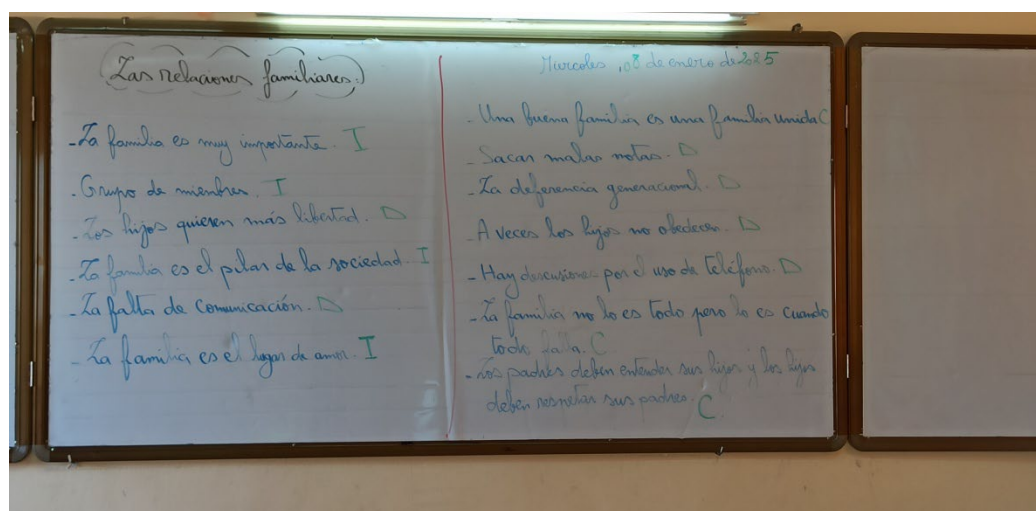 Las relaciones familiares.
- La familia es muy importante. I
- Grupo de miembros. I
- Los hijos quieren más libertad. D
- La familia es el pilar de la sociedad. I
- La falta de comunicación. D
- La familia es el lugar de amor. I
Murcoles, 08 de enero de 2025
- Una buena familia es una familia unida C
- Sacar malas notas. D
- La deferencia generacional. D
- A veces los hijos no obedecen. D
- Hay descusiones por el uso de teléfono. D
- La familia no lo es todo pero lo es cuando
todo falla. C
- Los padres deben entender sus hijos y los hijos
deben respetar sus padres. C